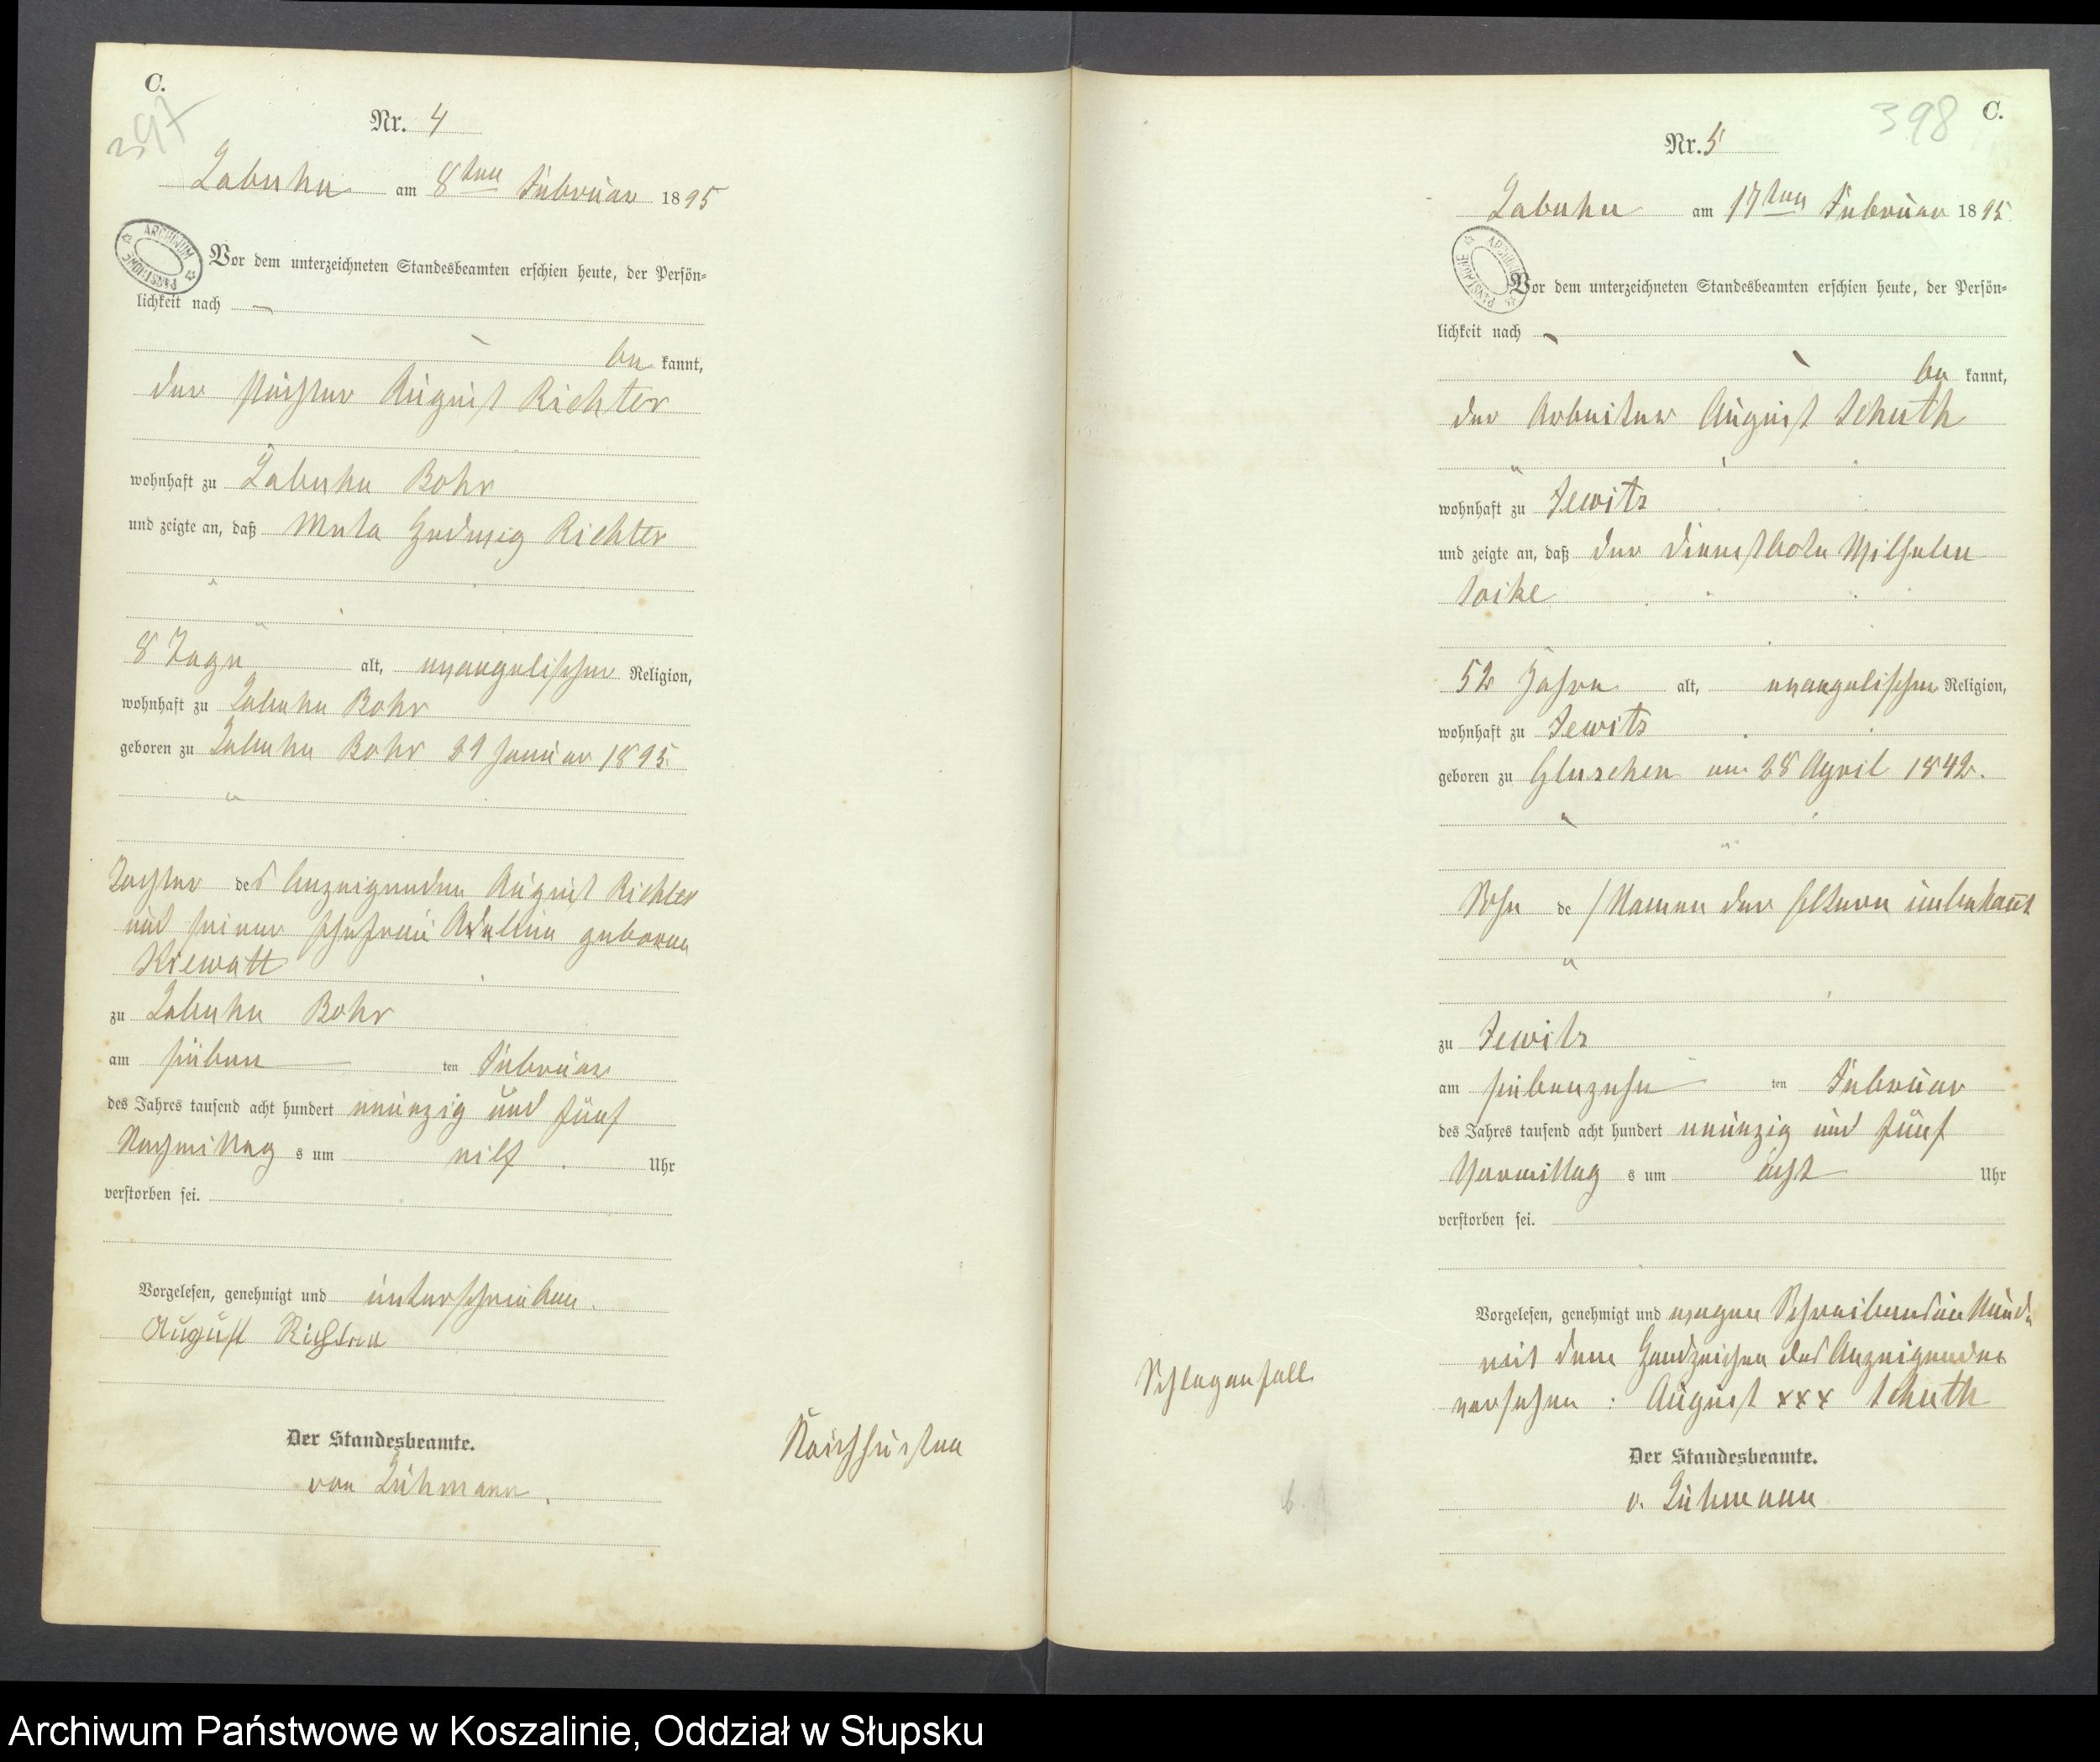 C.
397
Nr. 4
Labuhn am 8ten Februar 1895
ARCHIWUM PAŃSTWOWE
Vor dem unterzeichneten Standesbeamten erschien heute, der Persön-
lichkeit nach —
be kannt,
der Förster August Richter
wohnhaft zu Labuhn Bohr
und zeigte an, daß Meta Hedwig Richter
8 Tage alt, evangelischer Religion,
wohnhaft zu Labuhn Bohr
geboren zu Labuhn Bohr Januar 1895
Tochter des Anzeigenden August Richter
und seiner Ehefrau Adeline geborene
Kiewatt
zu Labuhn Bohr
am sieben ten Februar
des Jahres tausend acht hundert neunzig und fünf
Nachmittag s um elf Uhr
verstorben sei.
Vorgelesen, genehmigt und unterschrieben.
August Richter
Der Standesbeamte.
von Lühmann.
Keuchhusten
398
C.
Nr. 5
Labuhn am 17ten Februar 1895
ARCHIWUM PAŃSTWOWE
Vor dem unterzeichneten Standesbeamten erschien heute, der Persön-
lichkeit nach
be kannt,
der Arbeiter August Schuth
wohnhaft zu Jewitz
und zeigte an, daß der Dienstbote Wilhelm
52 Jahre alt, evangelischer Religion,
wohnhaft zu Jewitz
geboren zu Gluschen am 28 April 1842.
Sohn de / Namen der Eltern unbekannt
zu Jewitz
am siebenzehn ten Februar
des Jahres tausend acht hundert neunzig und fünf
Vormittag s um acht Uhr
verstorben sei.
Vorgelesen, genehmigt und wegen Schreibensunkunde
mit dem Handzeichen des Anzeigenden
versehen : August xxx Schuth
Der Standesbeamte.
v. Lühmann
Schlaganfall
Archiwum Państwowe w Koszalinie, Oddział w Słupsku